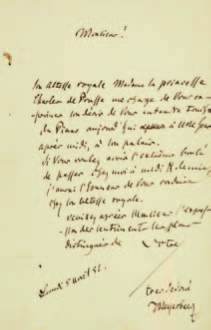 Monsieur!
Son altesse royale Madame la princesse
Charles de Prusse me charge de vous ex-
primer son désir de vous entendre
du Piano aujourd'hui
après midi, à son palais.
Si vous voulez avoir l'extrême bonté
de passer chez moi à midi &
j'aurai l'honneur de vous conduire
chez Son Altesse royale.
Veuillez agréer Monsieur l'expres-
sion des sentiments les plus
distingués de Votre
très dévoué
Meyerbeer
Lundi 5